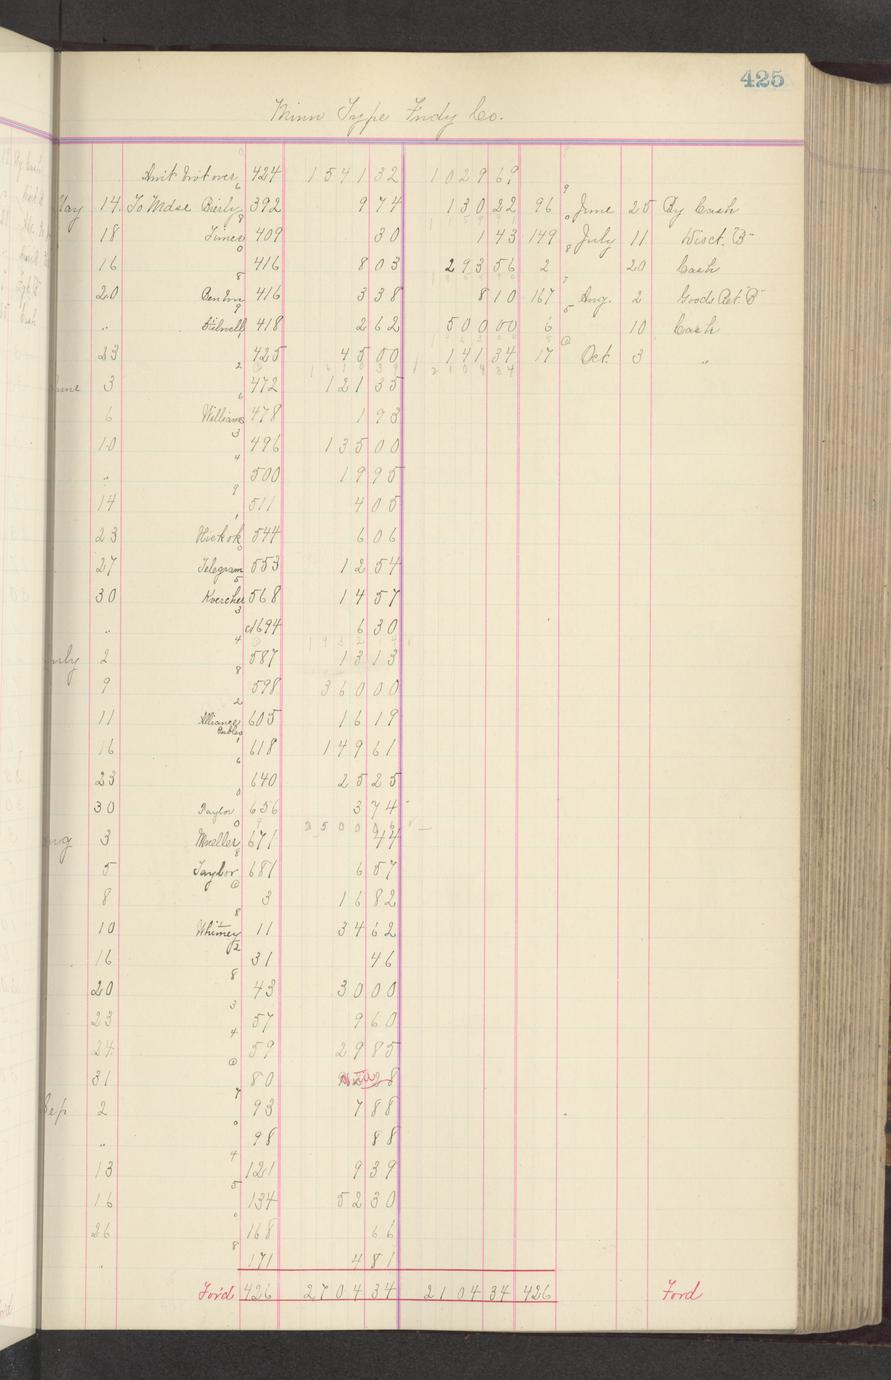 425
Minn Type Fndy Co.
Amt Brot over 424 1541 32 1029 69
May 14 To Mdse Bierly 392 9 74 130 22 96 June 25 By Cash
18 Times 409 30 1 43 149 July 11 Disct. "B"
16 416 8 03 293 56 2 20 Cash
20 416 3 38 8 10 167 Aug. 2 Goods Ret. "B"
" Stilwell 418 2 62 500 00 6 10 Cash
23 425 45 00 141 34 17 Oct. 3 "
June 3 472 121 35
6 Williams 478 1 93
10 496 135 00
" 500 19 95
14 511 4 05
23 Hickok 544 6 06
27 Telegram 553 12 54
30 Koercher 568 14 57
" c1694 6 30
July 2 587 13 13
9 598 360 00
11 Alliance 605 16 19
16 618 149 61
23 640 25 25
30 Taylor 656 3 74
2500
Aug 3 Mueller 671 44
5 Taylor 681 6 57
8 3 16 82
10 Whitney 11 34 62
16 31 46
20 43 30 00
23 57 9 60
24 59 29 85
31 80
Sep 2 93 7 88
" 98 88
13 121 9 39
16 134 52 30
26 168 66
" 171 4 81
Ford 426 2704 34 2104 34 426 Ford